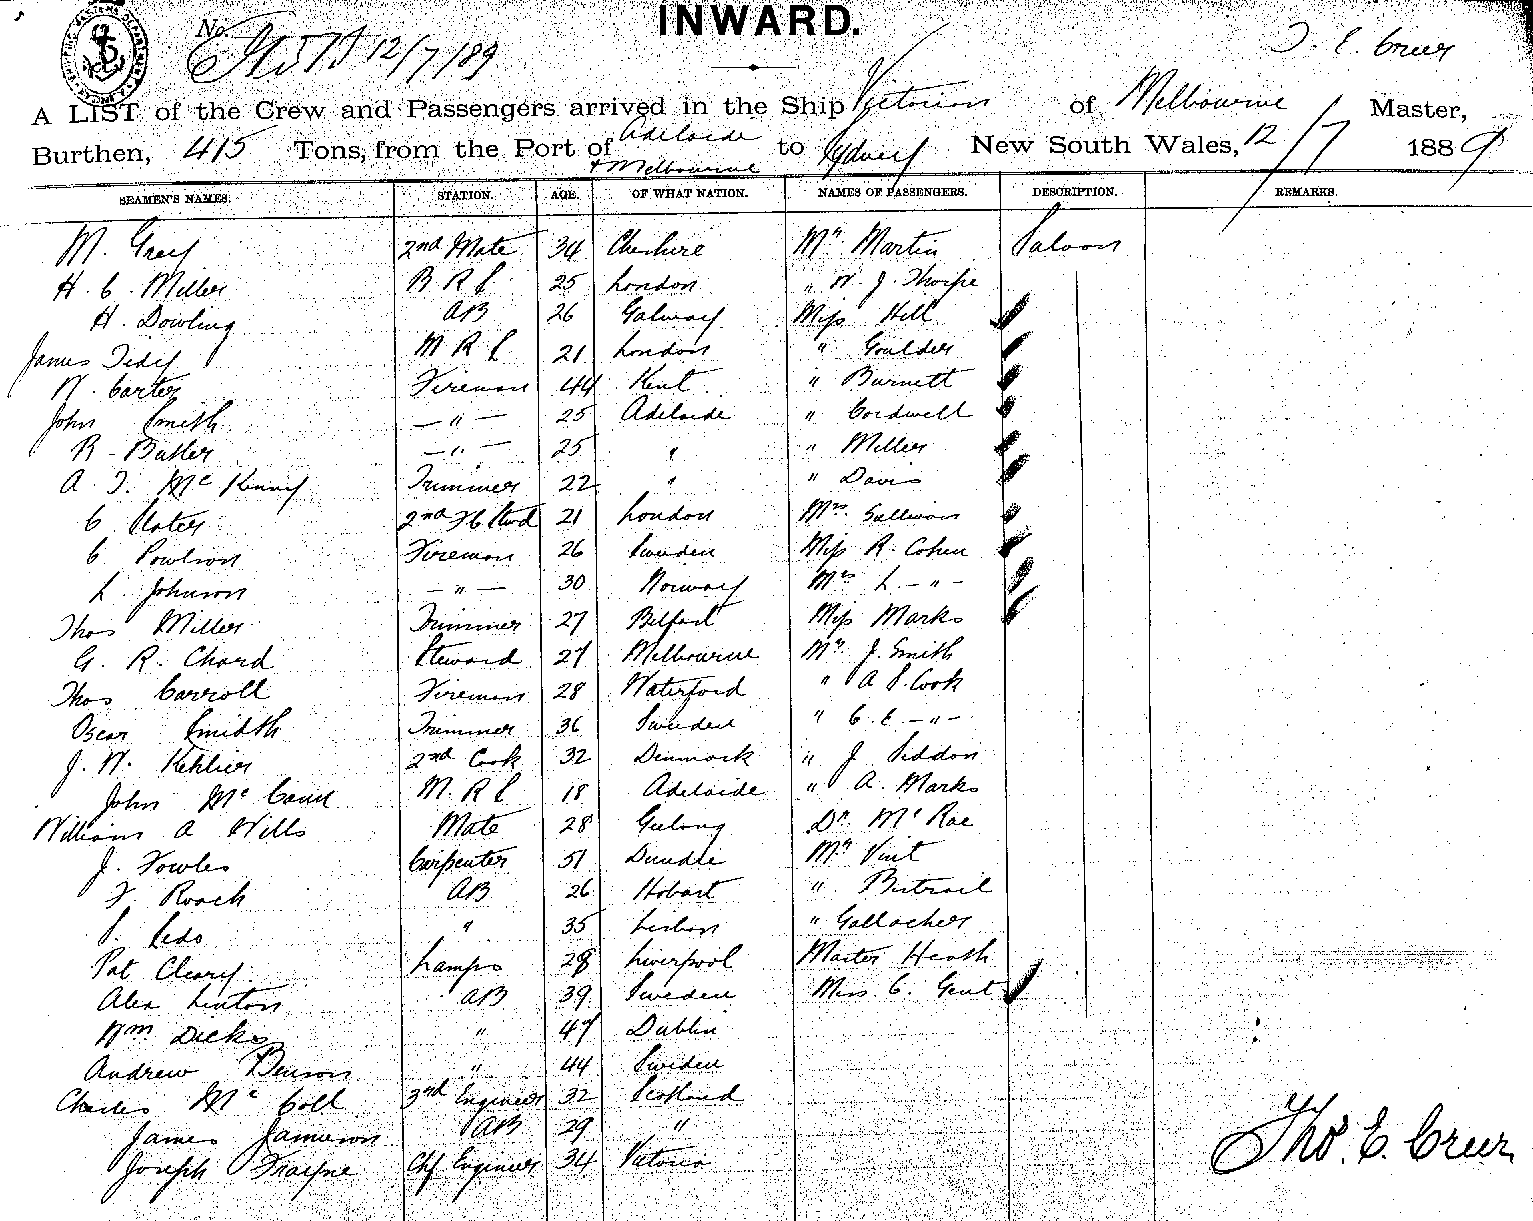 INWARD.
No.
12/7/89
T. E. Creer
A LIST of the Crew and Passengers arrived in the Ship Victorian of Melbourne Master,
Burthen, 415 Tons, from the Port of Adelaide & Melbourne to Sydney New South Wales, 12/7 1889
SEAMEN'S NAMES. STATION. AGE. OF WHAT NATION. NAMES OF PASSENGERS. DESCRIPTION. REMARKS.
M. Grey 2nd Mate 34 Cheshire Mr Martin Saloon
H. C. Miller B R S 25 London " W. J. Thorpe
H. Dowling AB 26 Galway Miss Hill
James Tedy M R S 21 London " Goulder
W. Carter Fireman 44 Kent " Burnett
John Smith — " — 25 Adelaide " Cordwell
R. Butler — " — 25 " " Miller
A. T. McKenny Trimmer 22 " " Davis
C Slater 2nd Stwd 21 London Mrs Sullivan
C Powlson Fireman 26 Sweden Miss R. Cohen
L. Johnson — " — 30 Norway Mrs L — " —
Thos Miller Trimmer 27 Belfast Miss Marks
G. R. Chard Steward 27 Melbourne Mr J. Smith
Thos Carroll Fireman 28 Waterford " A S. Cook
Oscar Smidth Trimmer 36 Sweden " C. E. — " —
J. W. 2nd Cook 32 Denmark " J Seddon
John McCann M. R S 18 Adelaide " A. Marks
William A Wills Mate 28 Geelong Dr McRae
J. Fowles Carpenter 51 Dundee Mr Vint
F Roach AB 26 Hobart "
S. " 35 Lisbon " Gallacher
Pat Cleary Lamps 28 Liverpool Master Heath
Alex Linton AB 39 Sweden Miss C. Gent
Wm Dicks " 47 Dublin
Andrew Benson " 44 Sweden
Charles McColl 3rd Engineer 32 Scotland
James Jameson AB 29 "
Joseph Trayne Chf Engineer 34 Victoria
Thos. E. Creer